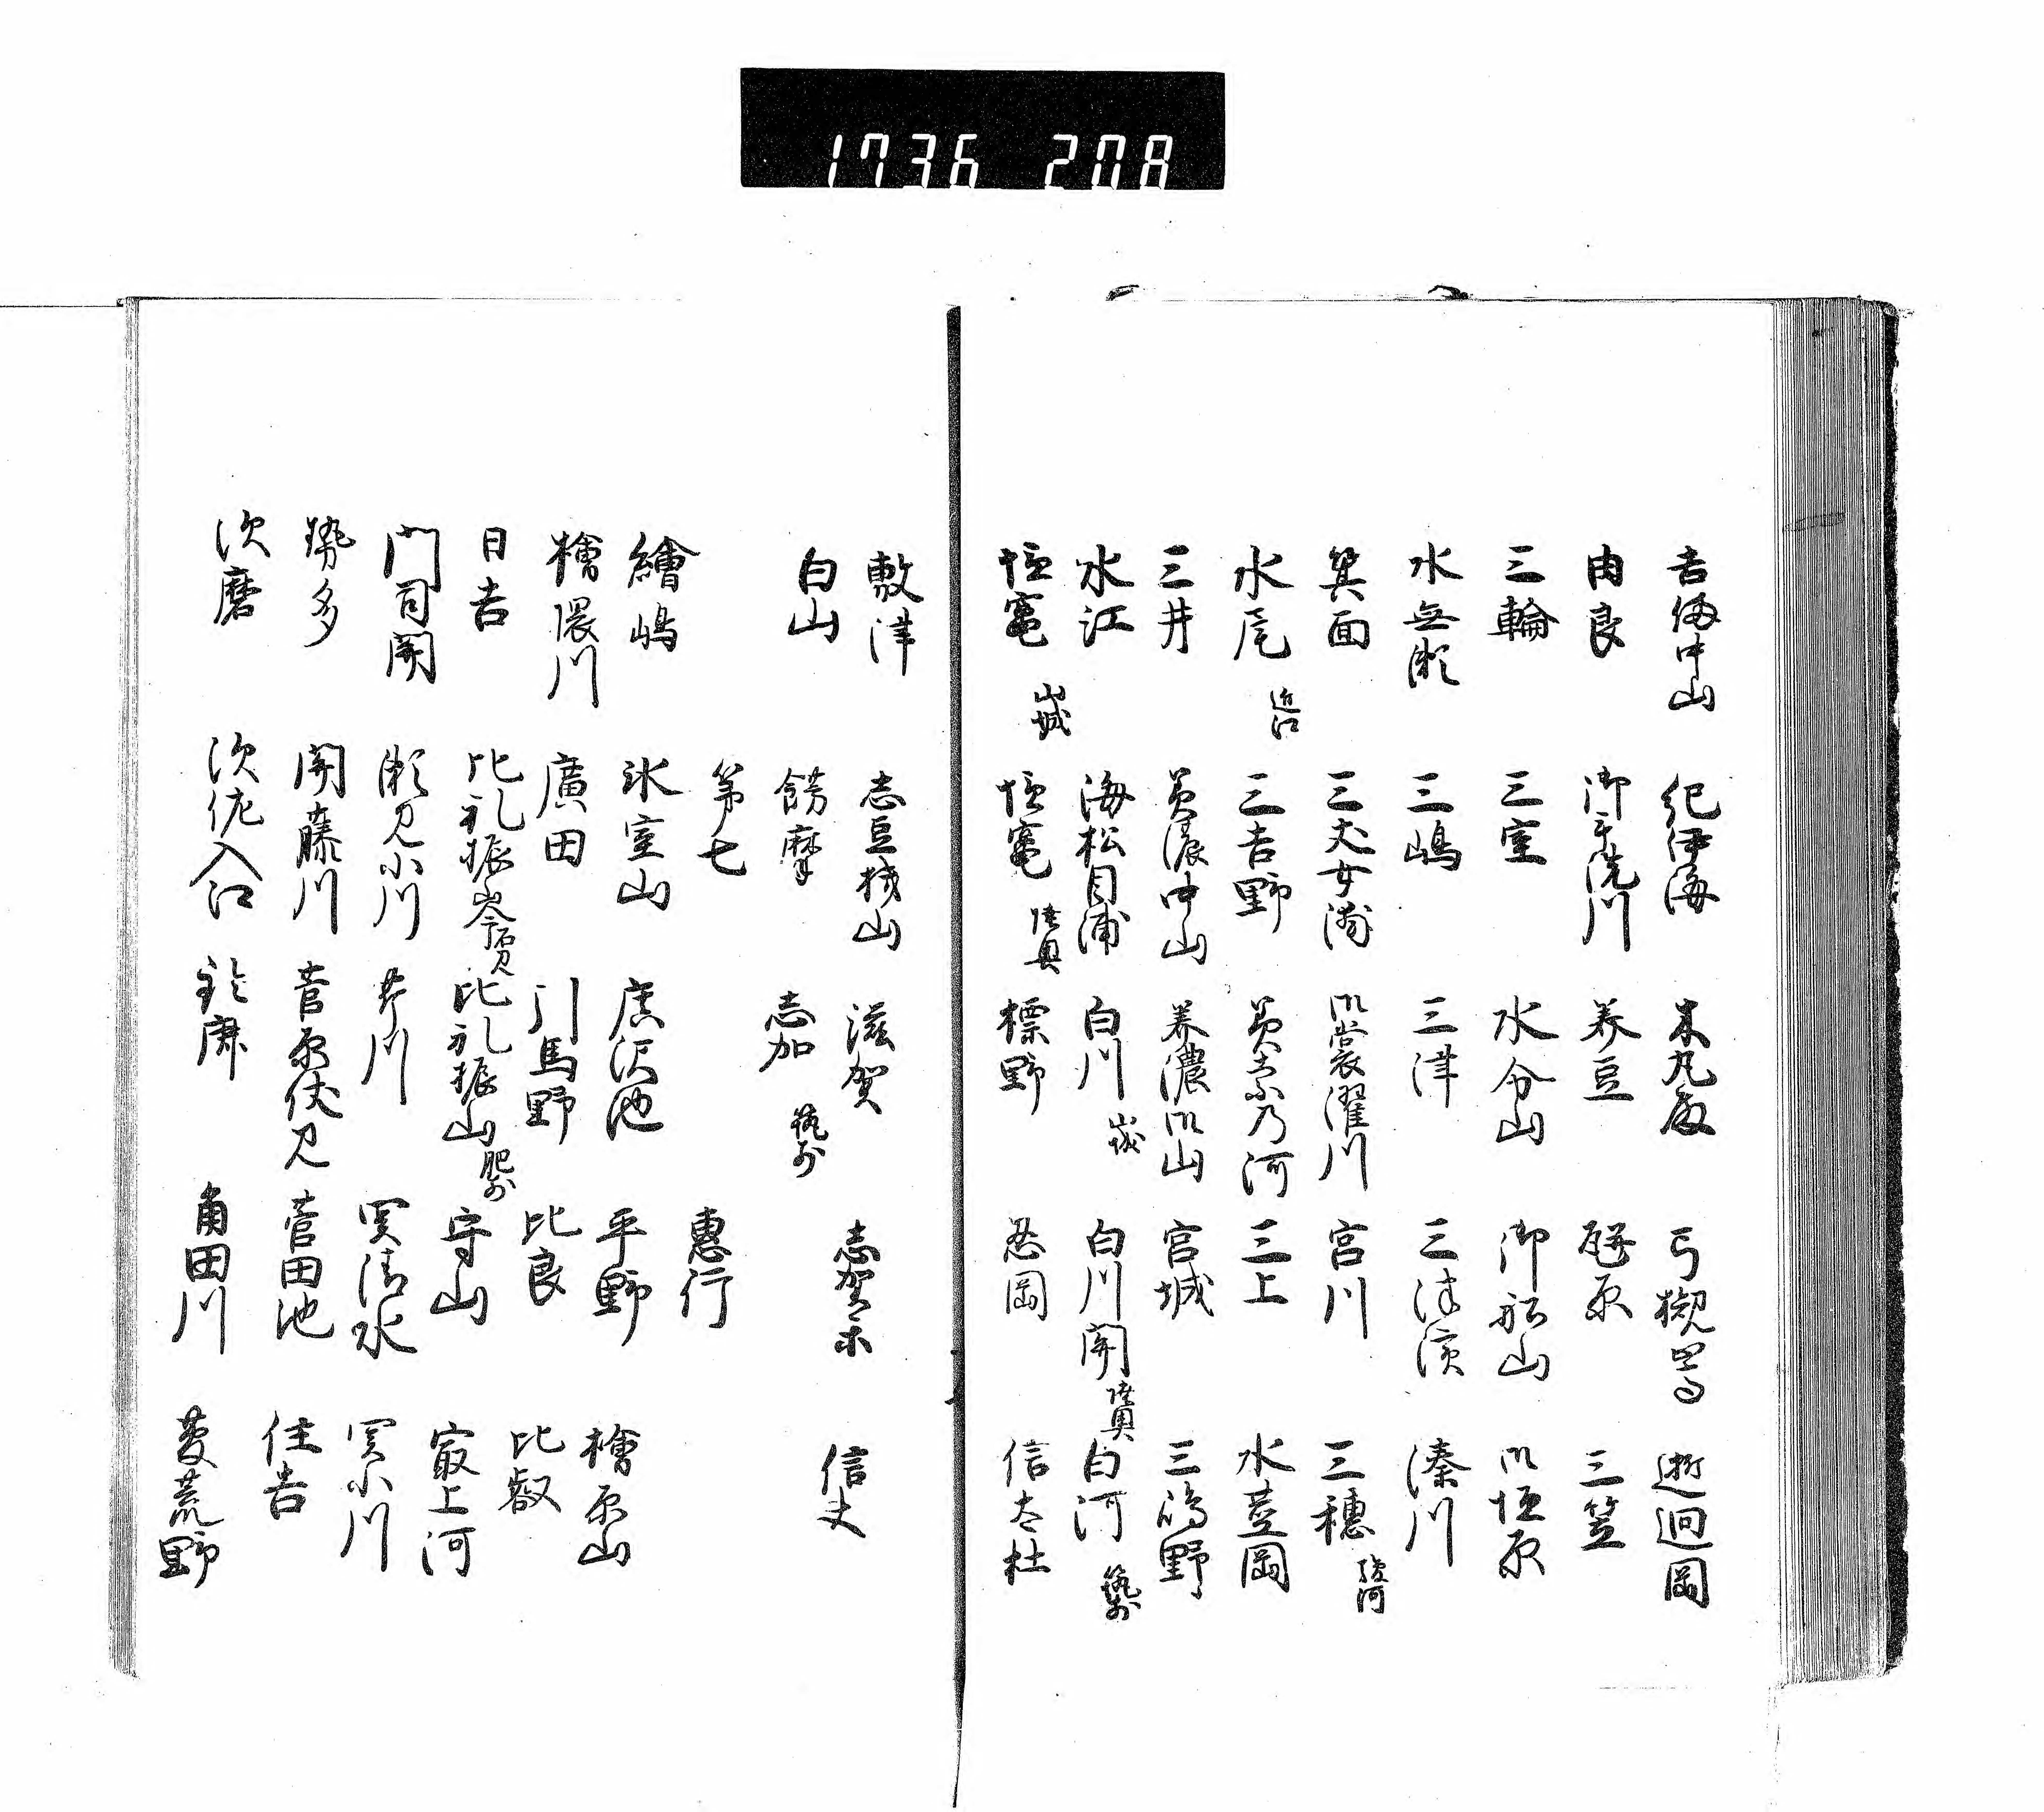 1736 208
吉備中山 紀伊海 木丸殿 弓槻嵩 逝廻岡
由良 御手洗川 美豆 瓶原 三笠
三輪 三室 水分山 御船山 御垣原
水無瀬 三嶋 三津 三津濱 湊川
箕面 三丈女渕 御裳濯川 宮川 三穂 駿河
水尾 近江 三吉野 三上 水茎岡
三井 美濃中山 美濃御山 宮城 三嶋野
水江 海松目浦 白川 山城 白川関 陸奥 白河 筑前
塩竃 山城 塩竃 陸奥 標野 忍岡 信太杜
敷津 志豆機山 滋賀 志賀 信夫
白山 餝摩 志加 筑前
第七 惠行
繪嶋 氷室山 廣沢池 平野 檜原山
檜隈川 廣田 引馬野 比良 比叡
日吉 比礼振岑 石見 比礼振山 肥前 守山 最上河
門司関 瀬見小川 芹川 関清水 関小川
勢多 関藤川 菅原伏見 菅田池 住吉
次磨 次佐入江 鈴鹿 角田川 菱荒野